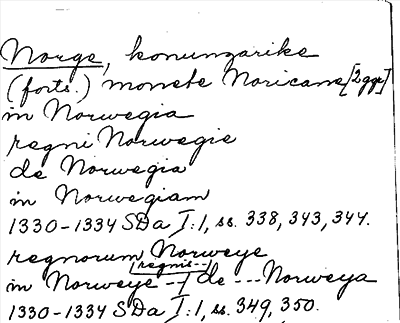 Norge, konungarike
(forts.) monete Noricane [2ggr]
in Norwegia
regni Norwegie
de Norwegia
in Norwegiam
1330-1334 SDa I:1, ss. 338, 343, 344.
regnorum Norweye
in Norweye --| [regnis--] de --- Norweya
1330-1334 SDa I:1, ss. 349, 350.